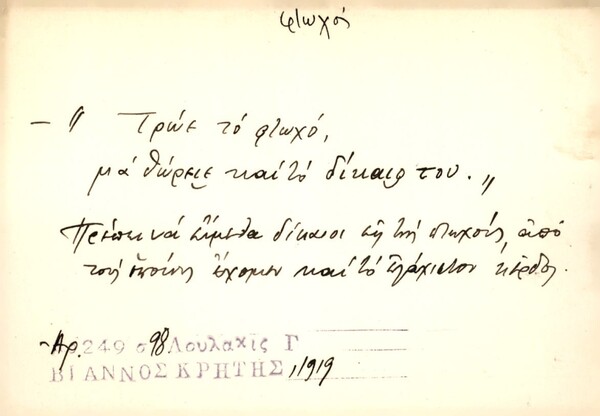 φτωχός
– " Τρώε τό φτωχό,
μά θώρειε καί τό δίκαιο του. "
Πρέπει νά εἴμεθα δίκαιοι εἰς τούς πτωχούς, ἀπό
τούς ὁποίους ἔχομεν καί τό ἐλάχιστον κέρδος.
Αρ. 249 σ 98 Λουλακις Γ
ΒΙΑΝΝΟΣ ΚΡΗΤΗΣ, 1919